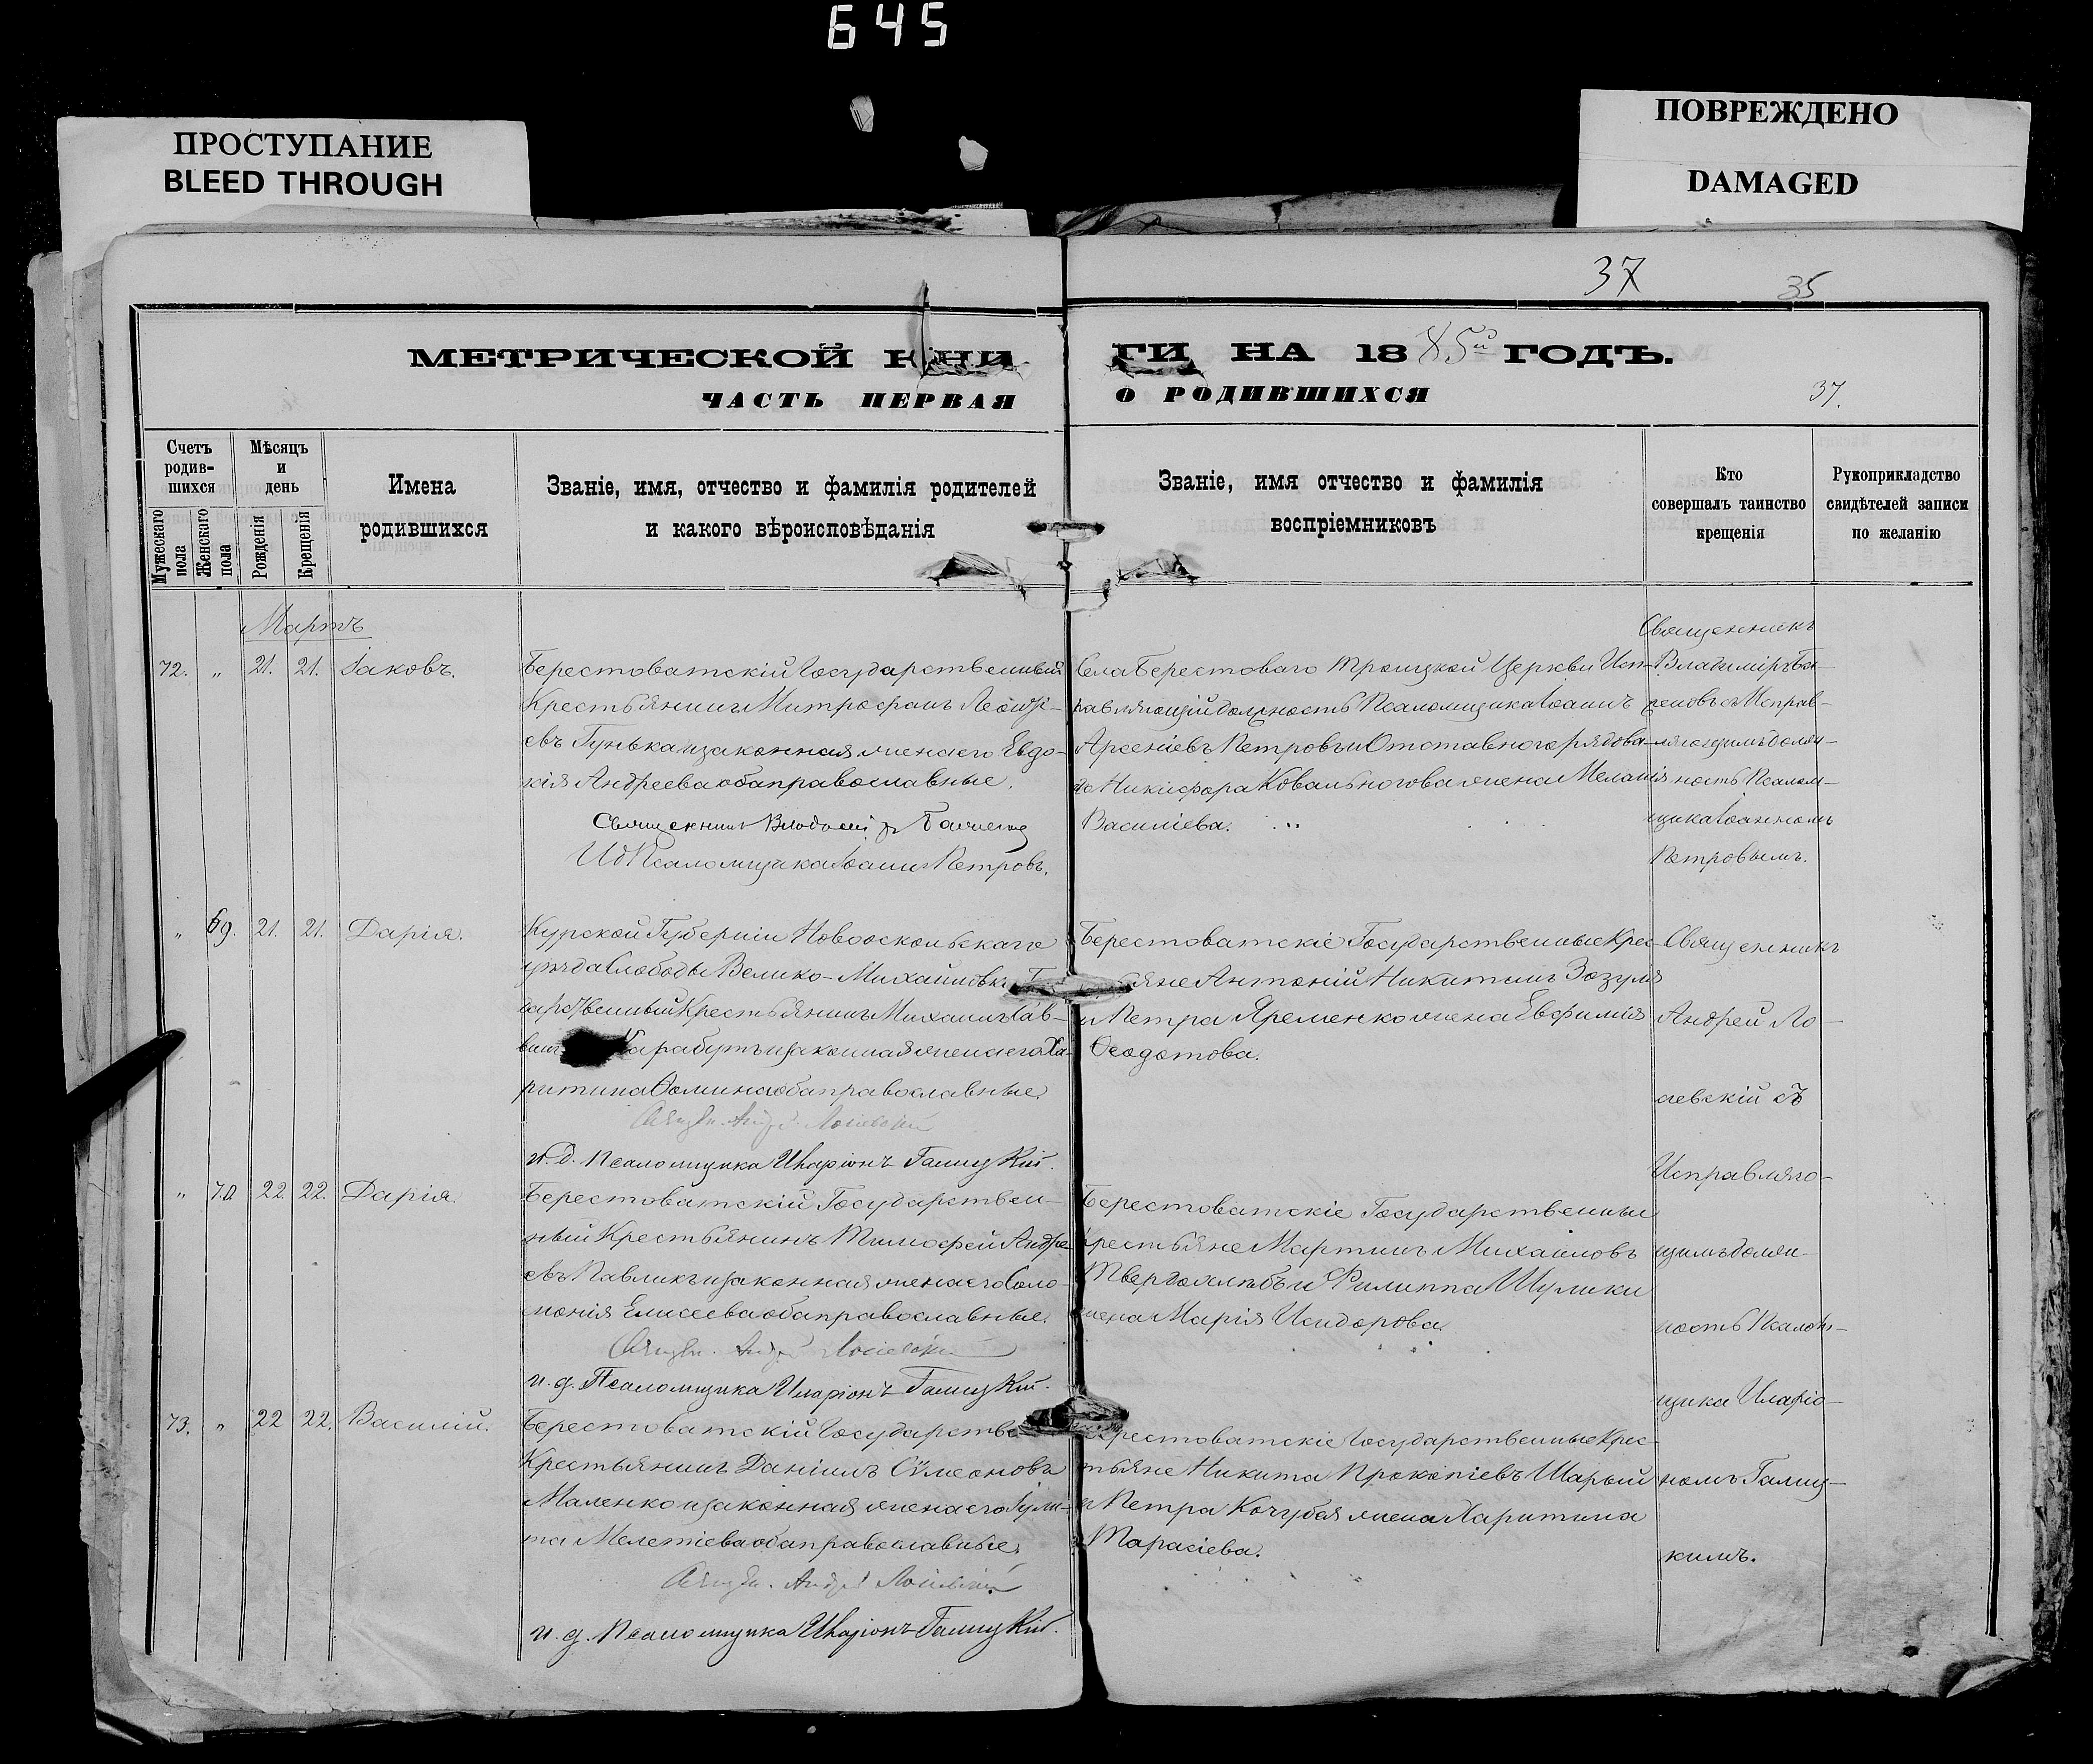 645
ПРОСТУПАНИЕ
BLEED THROUGH
ПОВРЕЖДЕНО
DAMAGED
37 35
МЕТРИЧЕСКОЙ КНИ
ГИ НА 1885й ГОДЪ.
ЧАСТЬ ПЕРВАЯ
О РОДИВШИХСЯ
37.
Счетъ родив-шихся
Мужескаго пола
Женскаго пола
Мѣсяцъ и день
Рожденія
Крещенія
Имена родившихся
Званіе, имя, отчество и фамилія родителей
и какого вѣроисповѣданія
Званіе, имя отчество и фамилія
воспріемниковъ
Кто
совершалъ таинство
крещенія
Рукоприкладство
свидѣтелей записи
по желанію
Мартъ
72. " 21. 21. Іаковъ.
Берестоватскій Государственный
Крестьянинъ Митрофанъ Леонті-
евъ Гунька и законная жена его Евдо-
кія Андреева оба православные.
Священникъ Владимір
И д Псаломщика Іоаннъ Петровъ.
Села Берестоваго Троицкой Церкви Исп-
равляющій должность Псаломщика Іоаннъ
Арсеніевъ Петровъ и Отставного рядова-
го Никифора Ковальногова жена Меланія
Василіева.
Священникъ
Владиміръ
съ Исправ-
ляющимъ долж-
ность Псалом-
щика Іоанномъ
Петровымъ.
" 69. 21. 21. Дарія.
Курской Губерніи Новооскольскаго
уѣзда Слободы Велико-Михайловки
дарственный Крестьянинъ Михаилъ Сав-
винъ Карабутъ и законная жена его Ха-
ритина Ѳомина оба православные
Священ. Андрей Лонаевскій
и. д. Псаломщика Иларіонъ Галицкій.
Берестоватскіе Государственные Крес-
яне Антоній Никитинъ Зозуля
и Петра Яременко жена Евфимія
Ѳеодотова.
Священникъ
Андрей Ло-
аевскій съ
Исправляю-
щимъ долж-
ность Псалом-
щика Иларіо-
номъ Галиц-
кимъ.
" 70. 22. 22. Дарія.
Берестоватскій Государствен-
ный Крестьянинъ Тимофей Андре-
евъ Павликъ и законная жена его Соло-
монія Елисеева оба православные.
Священ. Андрей
и. д. Псаломщика Иларіонъ Галицкій.
Берестоватскіе Государственные
Крестьяне Мартинъ Михаиловъ
Твердохлѣбъ и Филиппа Шулики
жена Марія Исидорова.
73. " 22 22. Василій.
Берестоватскій Государстве
Крестьянинъ Даніилъ Сѵмеоновъ
Маленко и законная жена его Іули-
та Мелетіева оба православные.
Священ. Андрей
и. д. Псаломщика Иларіонъ Галицкій.
Берестоватскіе Государственные Крес-
тьяне Никита Прокопіевъ Шарый
и Петра Кочубея жена Харитина
Тарасіева.